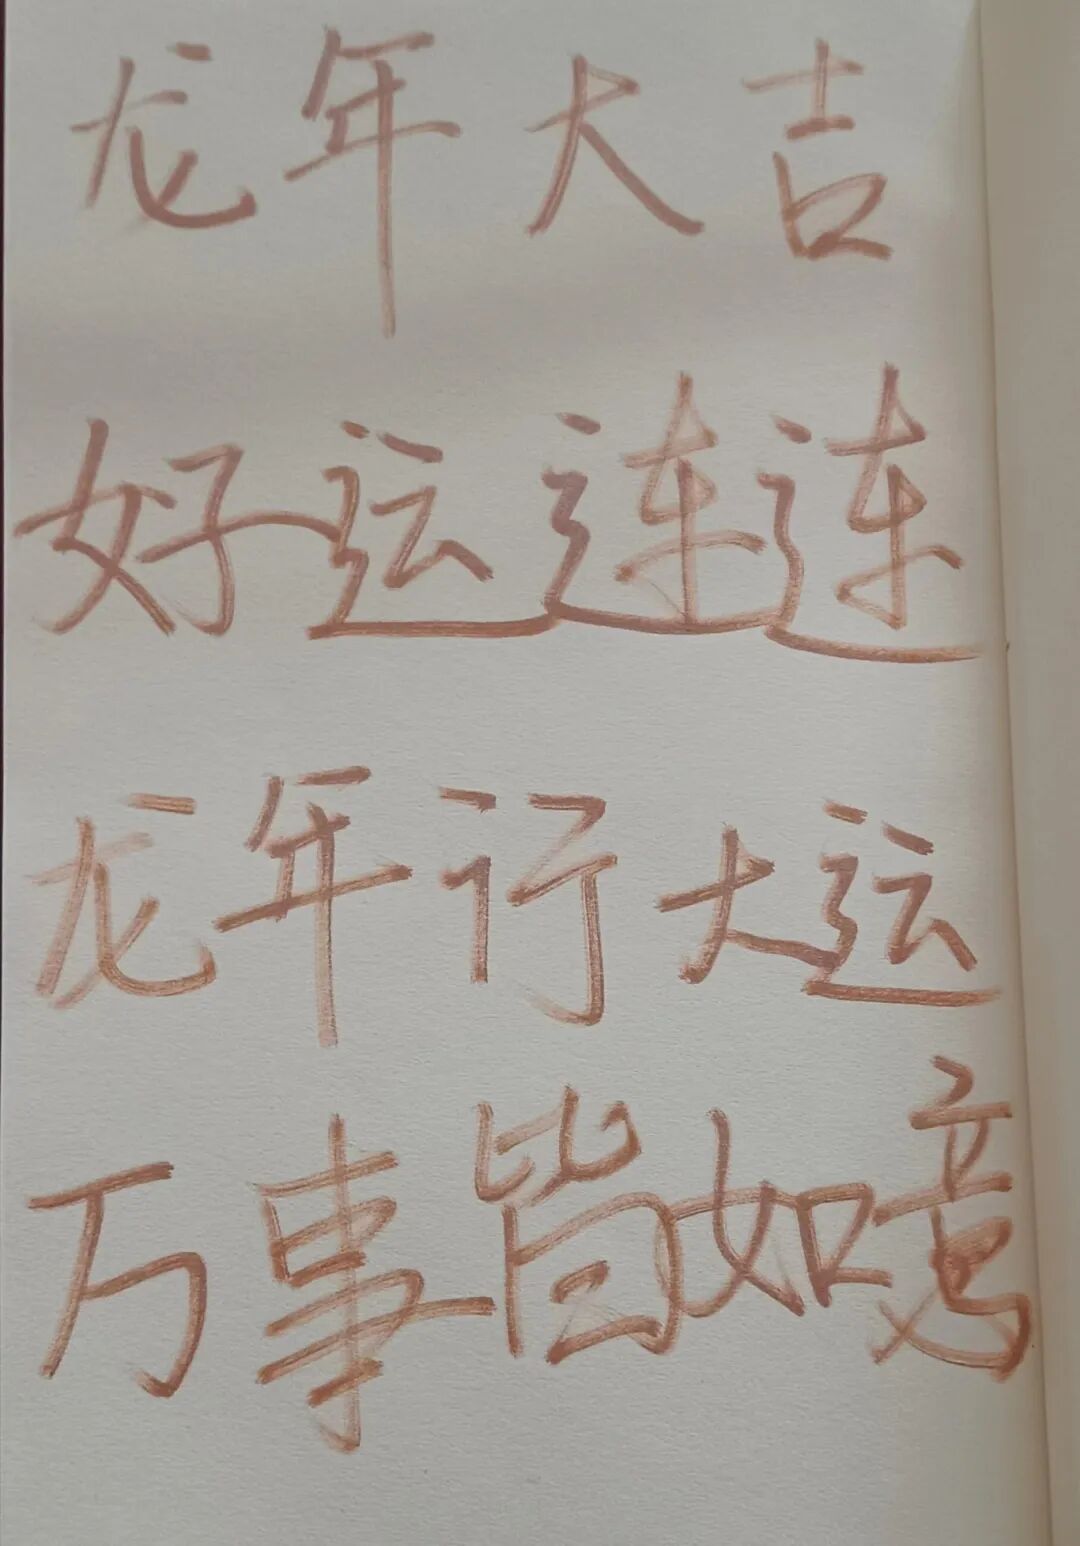 龙年大吉
好运连连
龙年行大运
万事皆如意